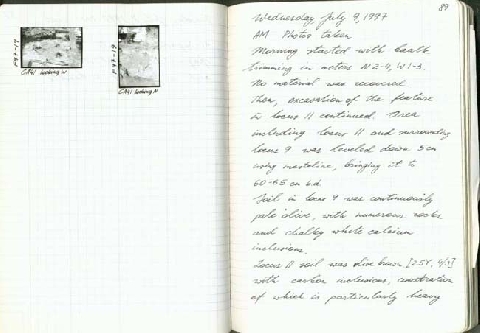 P97-17
C/41 looking N
P97-19
C/41 looking N
89
Wednesday, July 9, 1997
AM Photos taken
Morning started with baulk
trimming in meters N 2-4, W 1-3.
No material was recovered
then, excavation of the feature
in locus 11 continued. Area
including locus 11 and surrounding
locus 9 was leveled down 5 cm
using mastoline, bringing it to
60-65 cm b.d.
Soil in locus 9 was continuously
pale olive, with numerous rocks
and chalky white calcium
inclusions.
Locus 11 soil was olive brown [2.5Y, 4/3]
with carbon inclusions, concentration
of which is particularly heavy